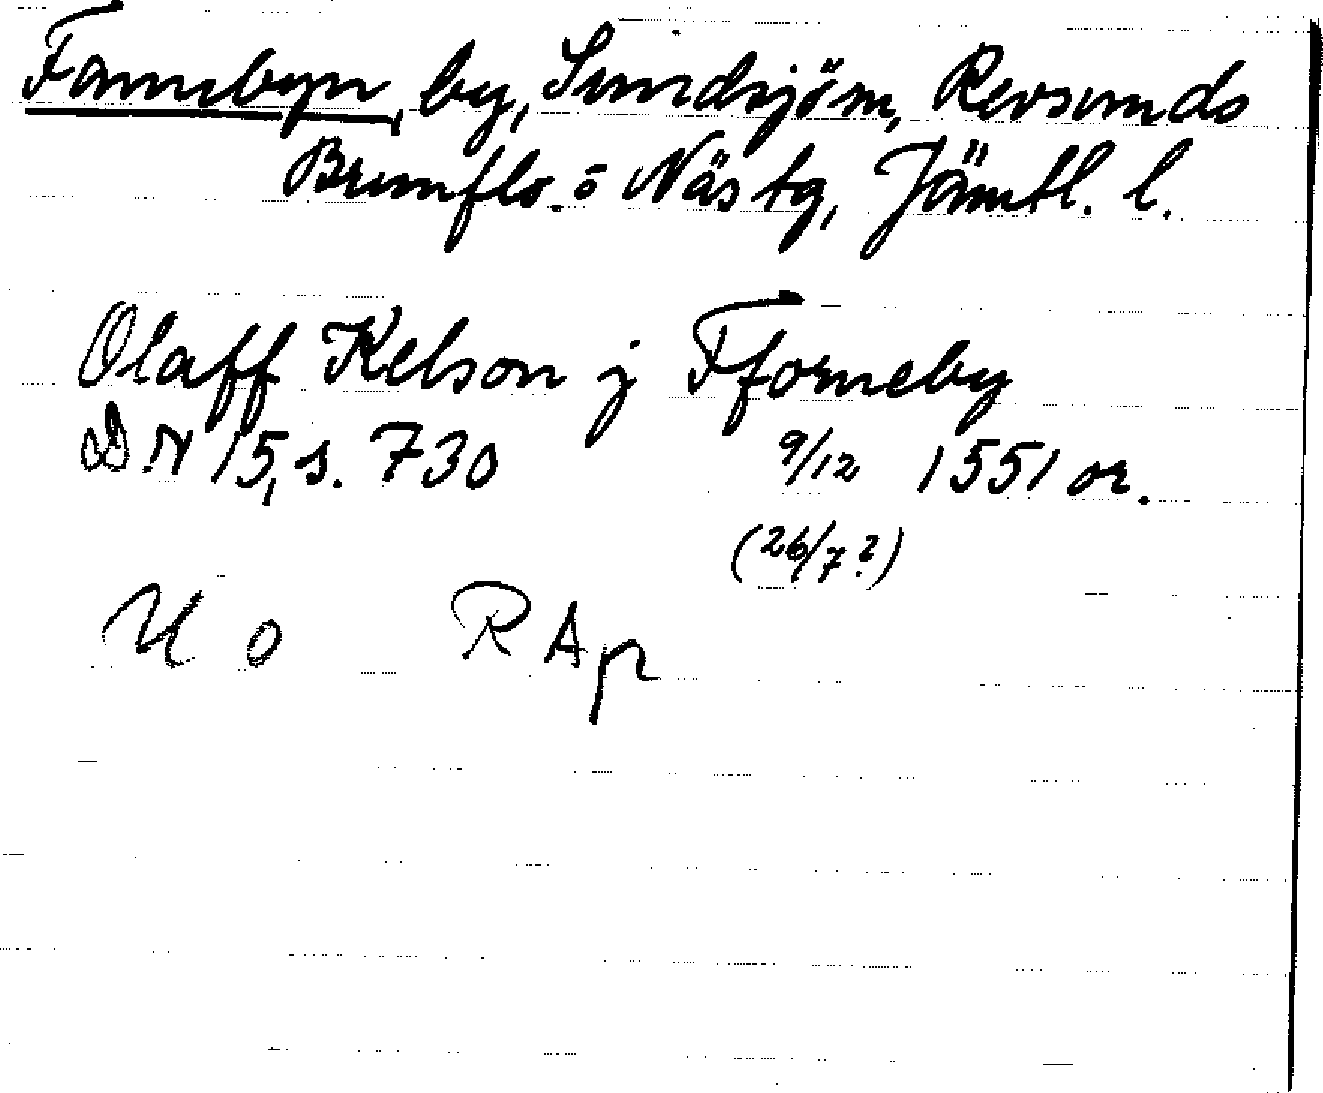 Fannebyn, by, Sundsjö sn, Revsunds
Brunflo o Näs tg, Jämtl. l.
Olaff Kelson j Fforneby
DN 15, s. 730 9/12 1551 or.
(26/7?)
U o RAp